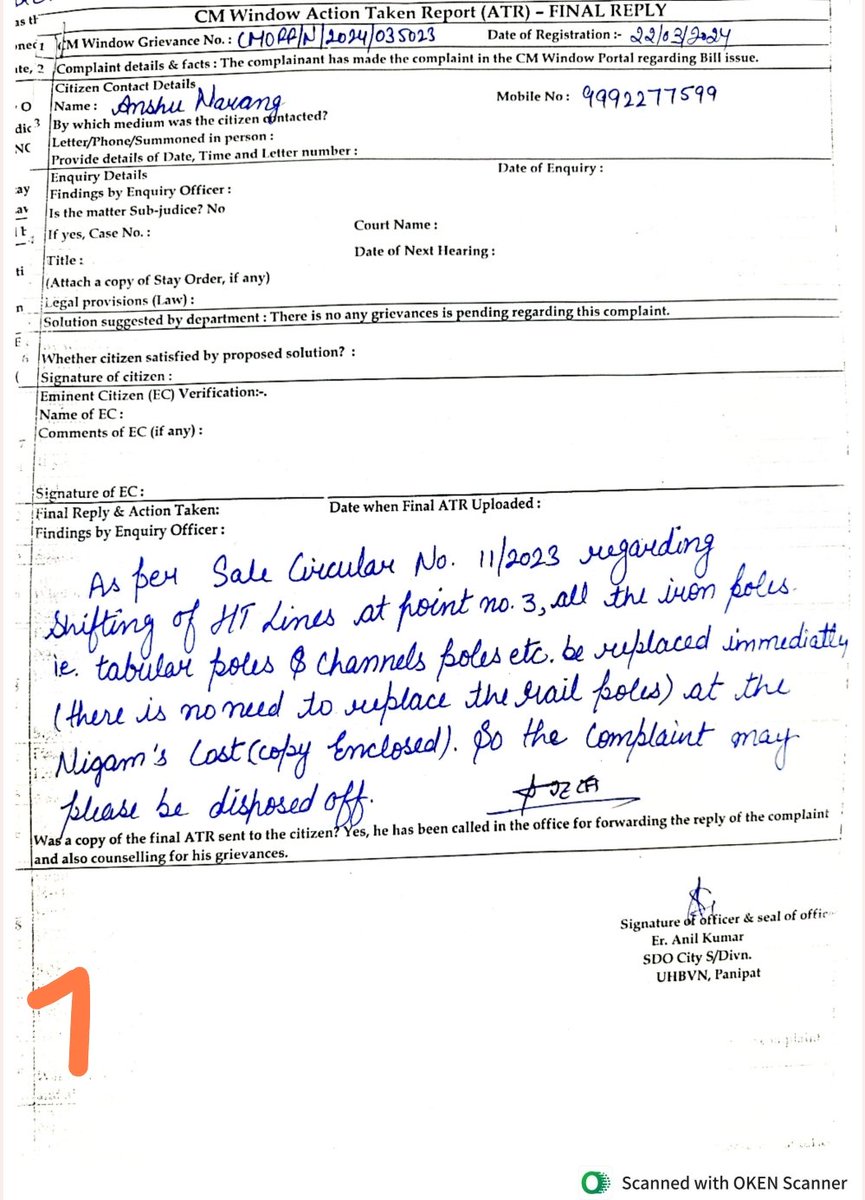 CM Window Action Taken Report (ATR) – FINAL REPLY
CM Window Grievance No. : CMOPP/N/2024/035023 Date of Registration :- 22/03/2024
Complaint details & facts : The complainant has made the complaint in the CM Window Portal regarding Bill issue.
Citizen Contact Details
Name : Anshu Narang Mobile No : 9992277599
By which medium was the citizen contacted?
Letter/Phone/Summoned in person :
Provide details of Date, Time and Letter number :
Enquiry Details Date of Enquiry :
Findings by Enquiry Officer :
Is the matter Sub-judice? No
If yes, Case No. : Court Name :
Title : Date of Next Hearing :
(Attach a copy of Stay Order, if any)
Legal provisions (Law) :
Solution suggested by department : There is no any grievances is pending regarding this complaint.
Whether citizen satisfied by proposed solution? :
Signature of citizen :
Eminent Citizen (EC) Verification:-.
Name of EC :
Comments of EC (if any) :
Signature of EC :
Final Reply & Action Taken: Date when Final ATR Uploaded :
Findings by Enquiry Officer :
As per Sale Circular No. 11/2023 regarding
shifting of HT Lines at point no. 3, all the iron poles.
ie. tabular poles & channels poles etc. be replaced immediatly
(there is no need to replace the rail poles) at the
Nigam's Cost (copy Enclosed). So the complaint may
please be disposed off.
Was a copy of the final ATR sent to the citizen? Yes, he has been called in the office for forwarding the reply of the complaint
and also counselling for his grievances.
Signature of officer & seal of offic
Er. Anil Kumar
SDO City S/Divn.
UHBVN, Panipat
1
Scanned with OKEN Scanner